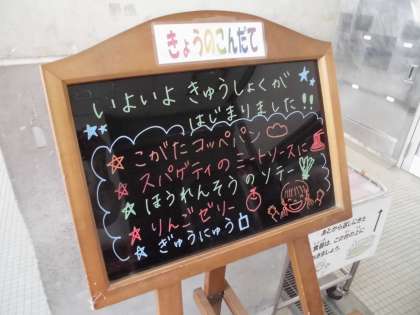 きょうのこんだて
いよいよ きゅうしょくが
はじまりました!!
☆こがたコッペパン
☆スパゲティのミートソースに
☆ほうれんそうのソテー
☆りんごゼリー
☆ぎゅうにゅう